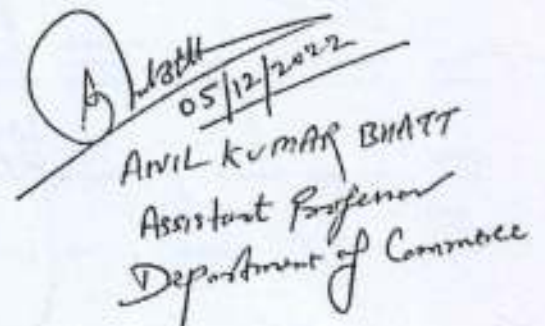 ABhatt
05/12/2022
ANIL KUMAR BHATT
Assistant Professor
Department of Commerce